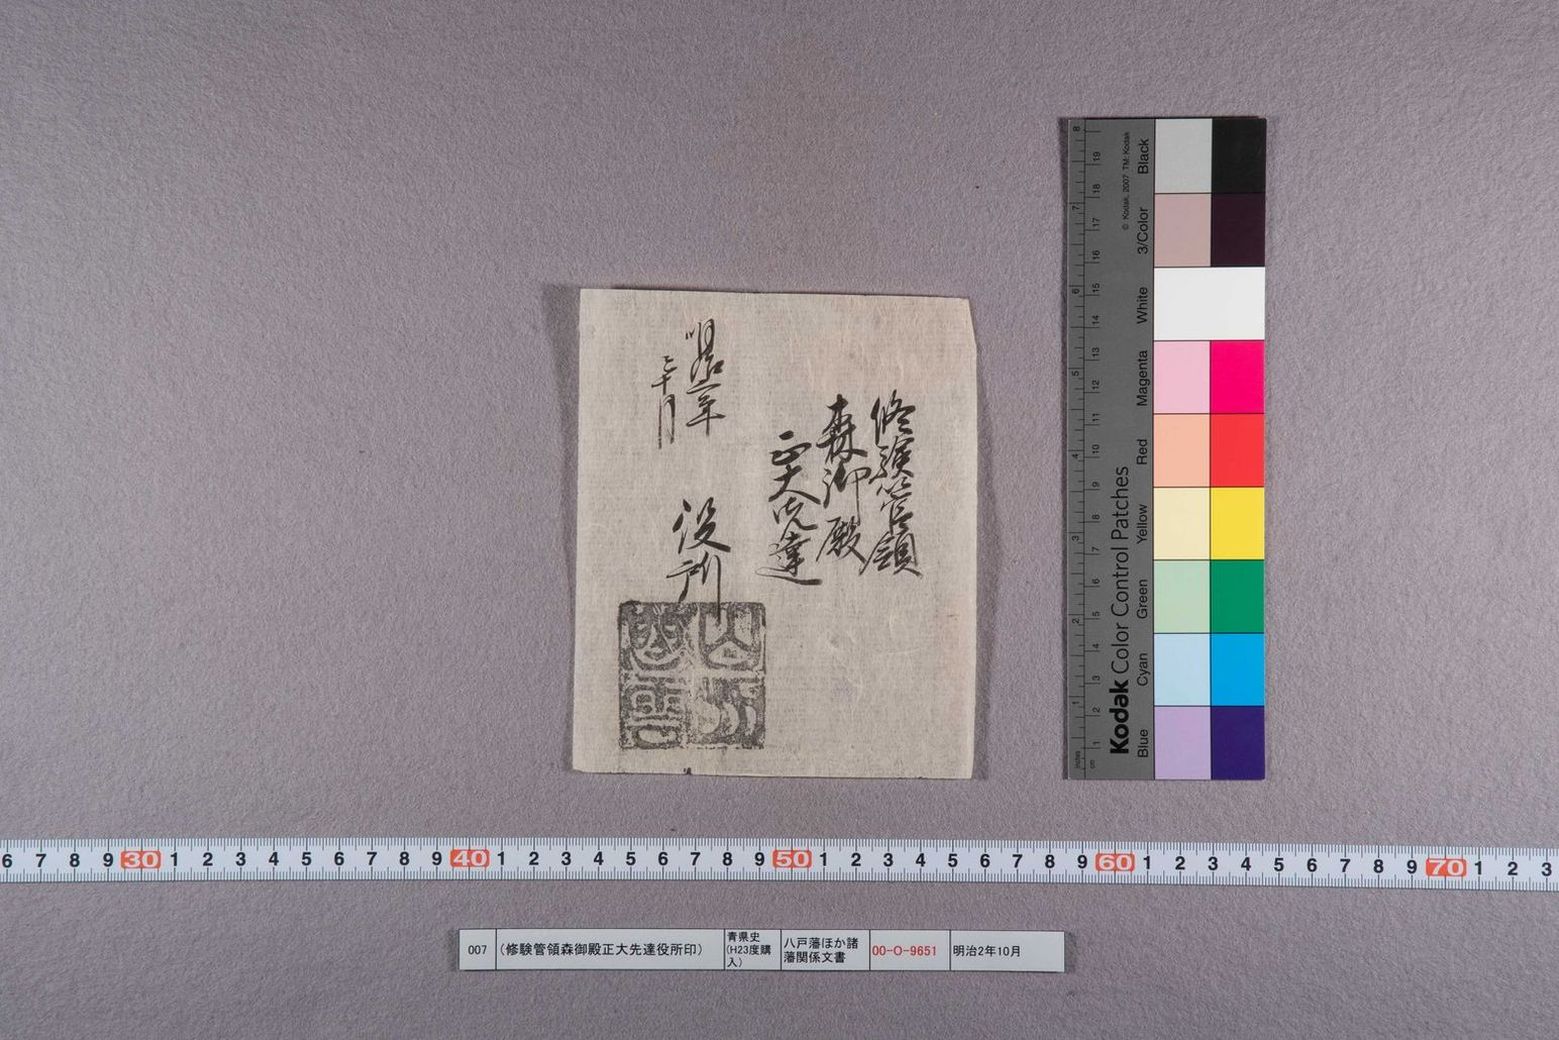 修験管領
森御殿
正大先達
明治二年
己十月
役所
Kodak Color Control Patches
© Kodak, 2007 TM: Kodak
Blue Cyan Green Yellow Red Magenta White 3/Color Black
inches 1 2 3 4 5 6 7 8
cm 1 2 3 4 5 6 7 8 9 10 11 12 13 14 15 16 17 18 19
6 7 8 9 30 1 2 3 4 5 6 7 8 9 40 1 2 3 4 5 6 7 8 9 50 1 2 3 4 5 6 7 8 9 60 1 2 3 4 5 6 7 8 9 70 1 2 3
007 (修験管領森御殿正大先達役所印) 青県史(H23度購入) 八戸藩ほか諸藩関係文書 00-O-9651 明治2年10月